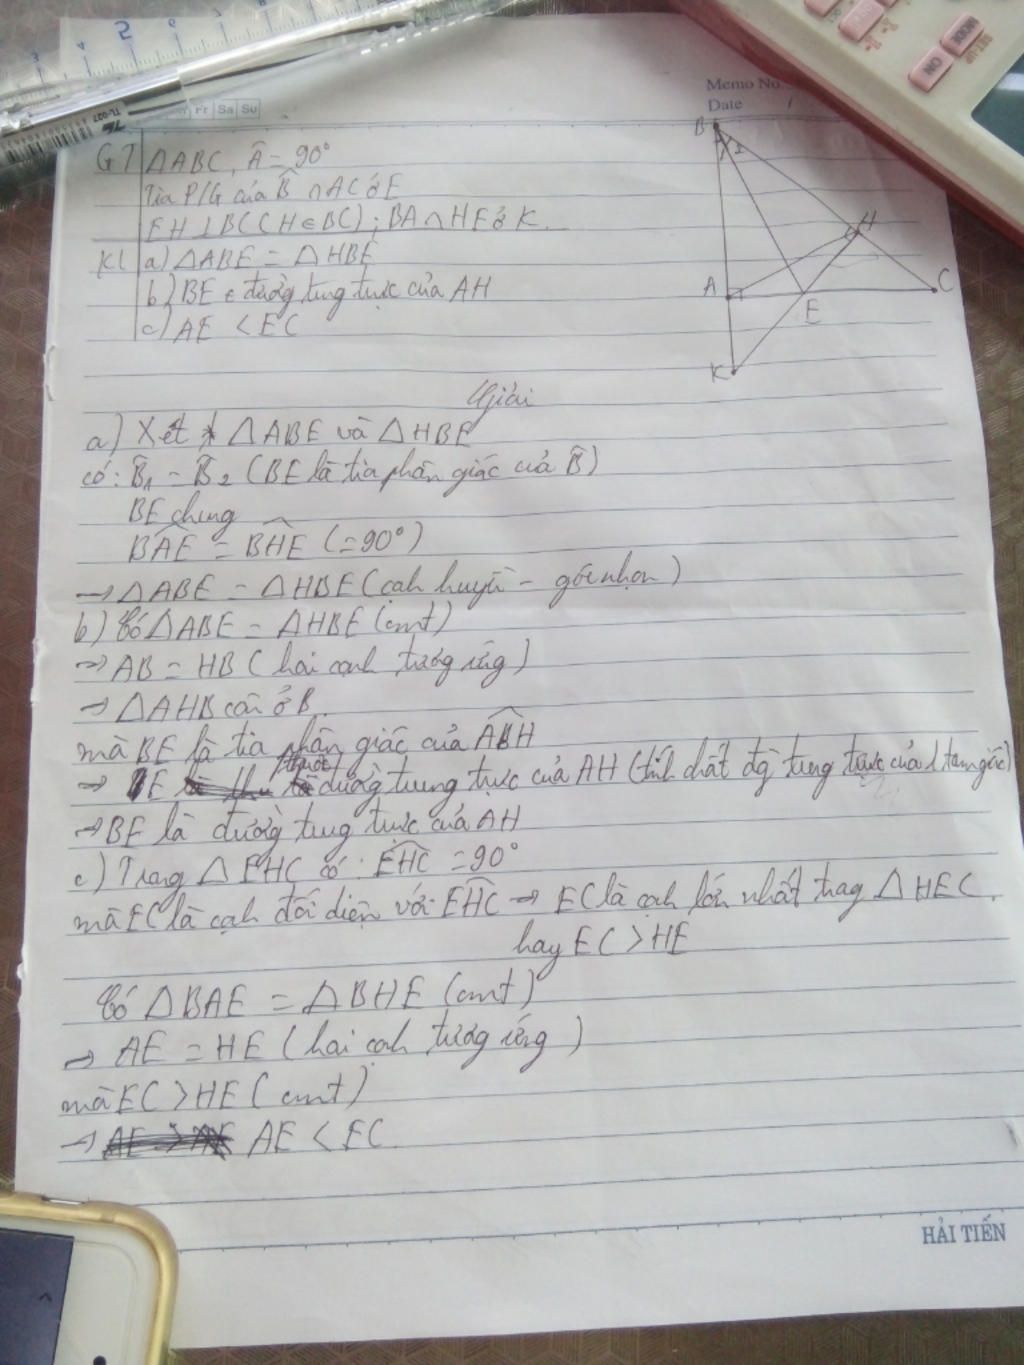 Memo No.
Date /
Fr Sa Su
5
TL-027
SET-UP
MODE
ON
GT ΔABC, Â = 90°
Tia P/G của B̂ ∩ AC ở E
EH ⊥ BC (H ∈ BC) ; BA ∩ HE ở K.
KL a) ΔABE = ΔHBE
b) BE ∈ đường tung trực của AH
c) AE < EC
B
1 2
H
A
E
C
K
Giải
a) Xét ΔABE và ΔHBE
có: B̂1 = B̂2 (BE là tia phân giác của B̂)
BE chung
BÂE = BĤE (= 90°)
→ ΔABE = ΔHBE (cạnh huyền - góc nhọn)
b) Có ΔABE = ΔHBE (cmt)
→ AB = HB (hai cạnh tương ứng)
→ ΔAHB cân ở B.
mà BE là tia phân giác của AB̂H
→ BE thuộc đường trung trực của AH (tính chất đg trung trực của 1 tam giác)
→ BE là đường tung trực của AH
c) Trong ΔEHC có: EĤC = 90°
mà EC là cạnh đối diện với EĤC → EC là cạnh lớn nhất trag ΔHEC.
hay EC > HE
Có ΔBAE = ΔBHE (cmt)
→ AE = HE (hai cạnh tương ứng)
mà EC > HE (cmt)
→ AE < EC.
HẢI TIẾN